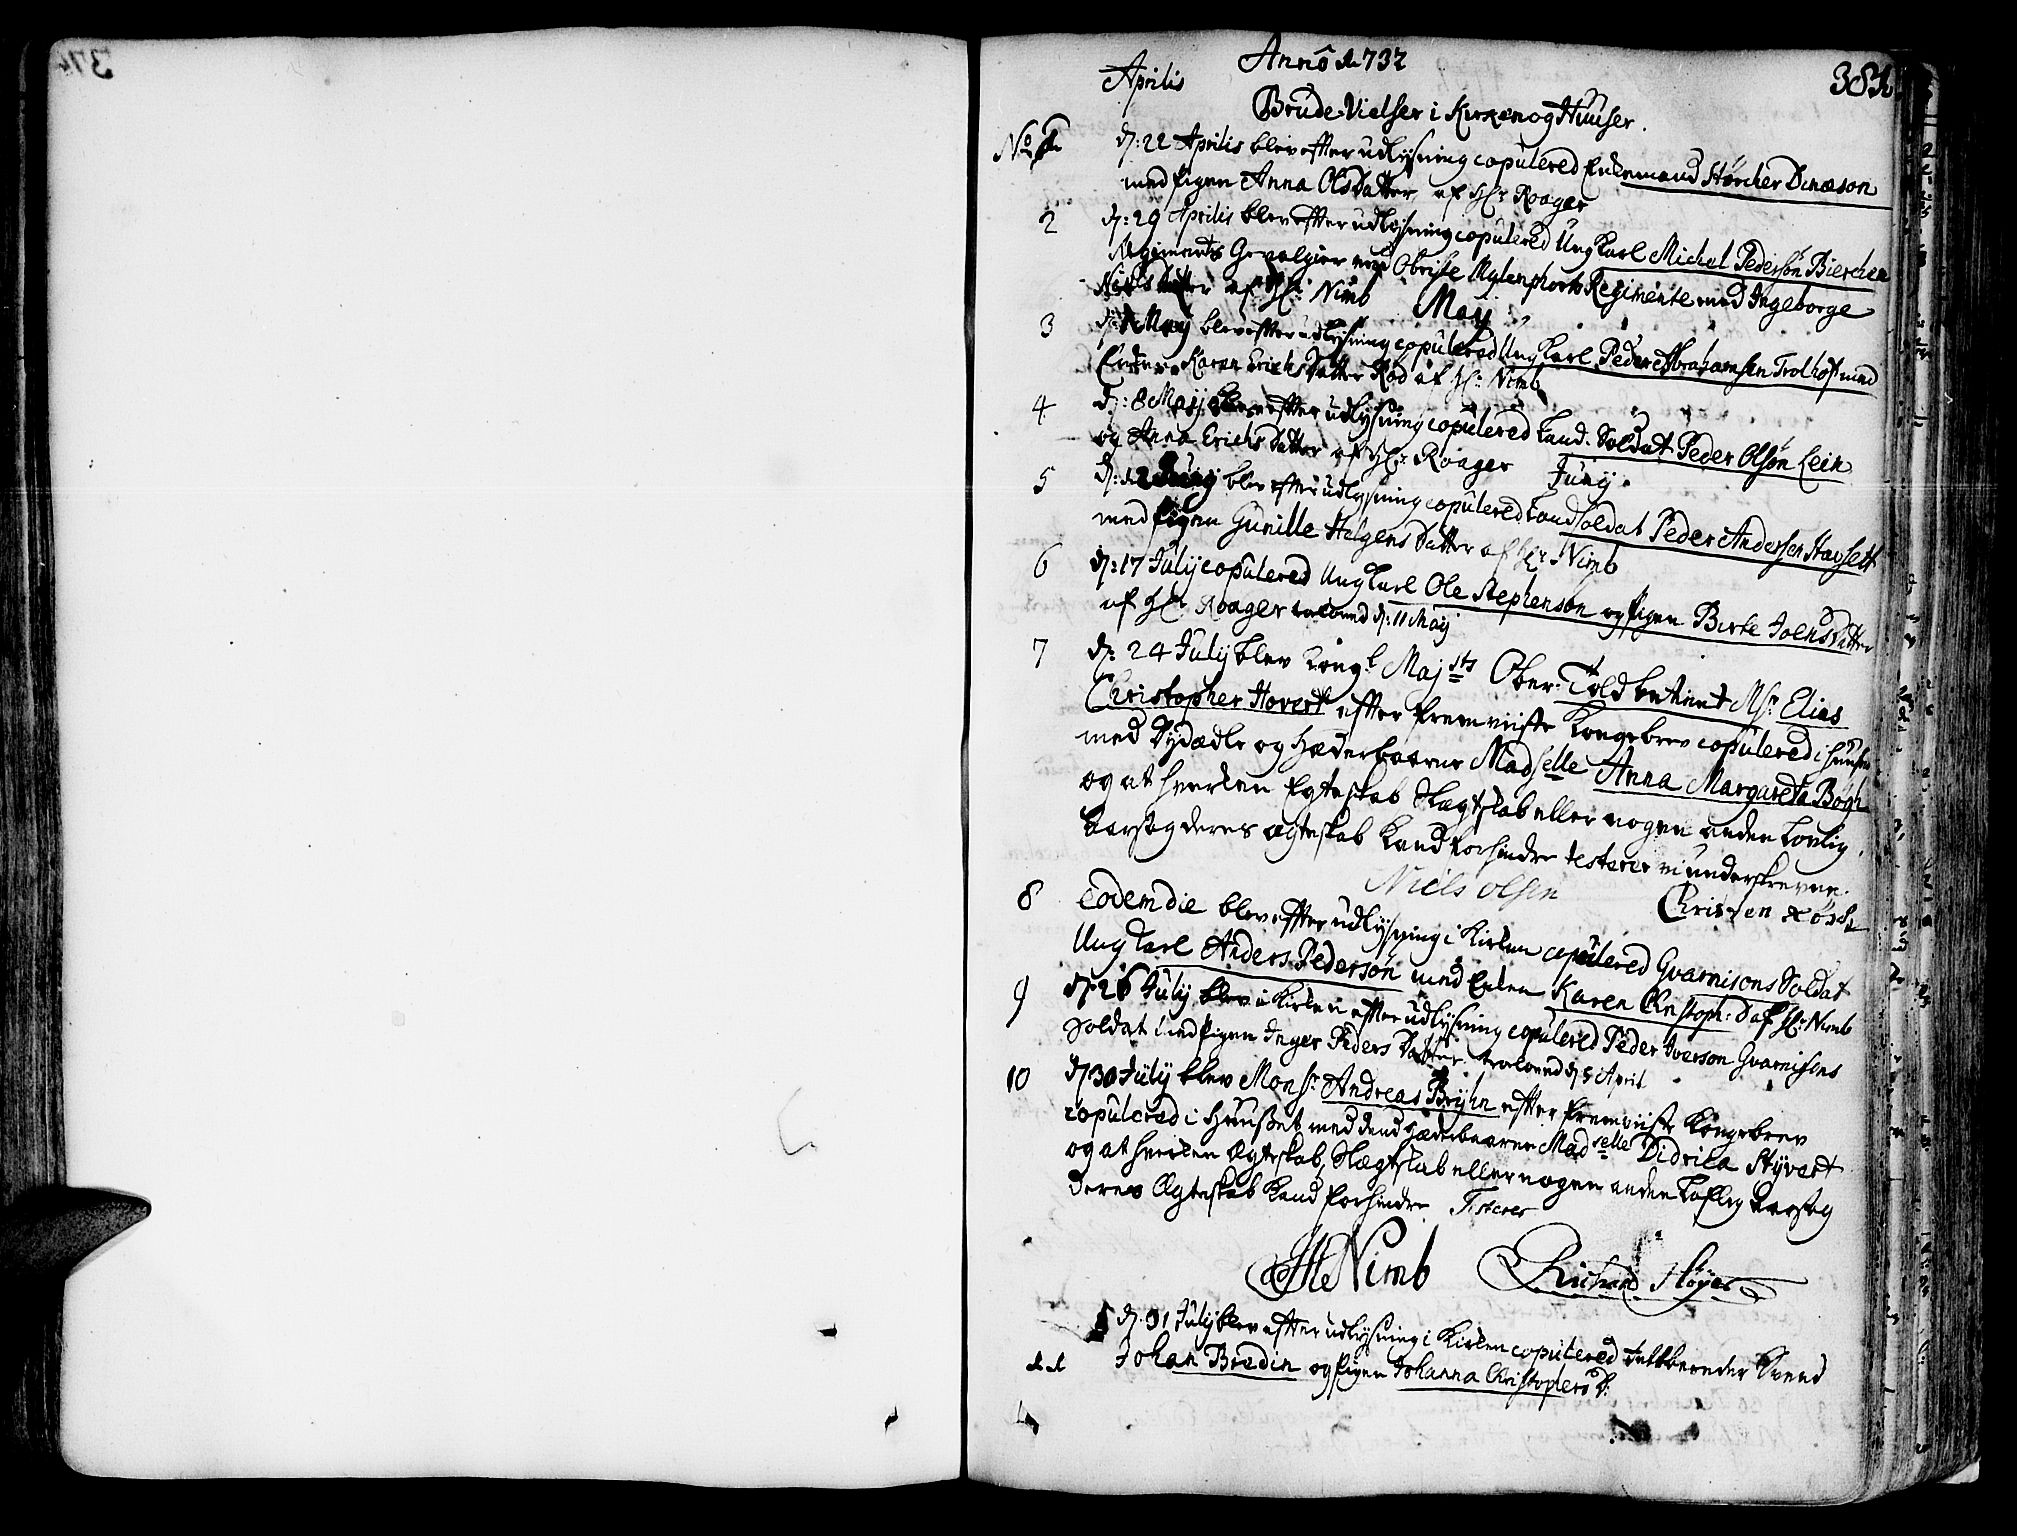 Anno 1737
381
Aprilis
Brude-Vielser i Kirken og Huuser.
No 1 d: 22 Aprilis blev efter udlysning copulered Enkemand Störcher Danason
med Pigen Anna OlsDatter af Hr: Roager
2 d: 29 Aprilis blev efter udlysning copulered Ung Karl Michel Pedersön Bierchen
Regiments Gevalgier ved Obriste Mylenphorts Regimente med Ingeborge
Niels Datter af Hr: Nimb May
3 d: 1 May blev efter udlysning copulered Ung Karl Peder Abrahamsen Trolhof med
Enken Karen Erichs Datter Rød af Hr: Nimb
4 d: 8 May blev efter udlysning copulered Land-Soldat Peder Olsön Lein
og Anna Erichs Datter af Hr: Roager Junij
5 d: 12 Junij blev efter udlysning copulered Landsoldat Peder Andersen Havsett
med Pigen Gunille Helgens Datter af Hr: Nimb
6 d: 17 Julij copulered Ung Karl Ole Stephenson og Pigen Birte Joens Datter
af Hr: Roager troloved d: 11 May
7 d: 24 Julij blev Kongl Majsts Ober-Toldbetient Msr Elias
Christopher Hovert efter fremviiste Kongebrev copulered i Huuset
med Dydædle og Hæderbaarne Madselle Anna Margareta Bøgh
og at hverken Egteskab Slagtskab eller nogen anden Lovlig
Aarsag deres Ægteskab Kand forhindre testerer vi underskrevne.
Niels Olsen Christen
8 Eodem die blev efter udlysning i Kirken copulered Gvarnisons Soldat
Ung Karl Anders Pedersön med Enken Karen Christoph: D af Hr: Nimb
9 d: 26 July blev i Kirken efter udlysning copulered Peder Iverson Gvarnisons
Soldat med Pigen Inger Peders Datter trolovd d 8 April
10 d 30 Julij blev Monsr: Andreas Bryhn efter fremviiste Kongebrev
copulered i Huuset med dend Hæderbaarne Madselle Didrica Styvart
og at hverken Ægteskab, Slægtskab eller nogen anden Lovlig Aarsag
deres Ægteskab Kand forhindre Testerer
Nimb Richard
d. 31 Julij blev efter udlysning i Kirken copulered Svend
11 Johan Bredin og Pigen Johanna Christophers D: